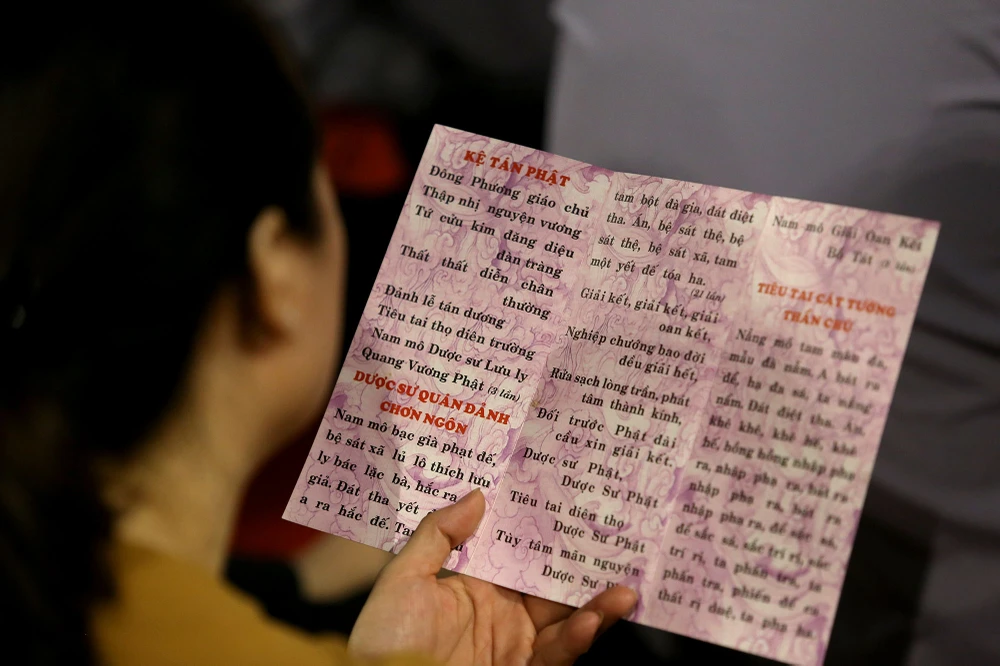 KỆ TÁN PHẬT
Đông Phương giáo chủ
Thập nhị nguyện vương
Tứ cửu kim đăng diệu
đàn tràng
Thất thất diễn chân
thường
Đảnh lễ tán dương
Tiêu tai thọ diên trường
Nam mô Dược sư Lưu ly
Quang Vương Phật (3 lần)
DƯỢC SƯ QUÁN ĐẢNH
CHƠN NGÔN
Nam mô bạc già phạt đế,
bệ sát xã lủ lô thích lưu
ly bác lặc bà, hắc ra
giả. Đát tha yết
a ra hắc đế.
tam bột đà gia, đát điệt
tha. Án, bệ sát thệ, bệ
sát thệ, bệ sát xã, tam
một yết đế tóa ha.
(21 lần)
Giải kết, giải kết, giải
oan kết,
Nghiệp chướng bao đời
đều giải hết,
Rửa sạch lòng trần, phát
tâm thành kính,
Đối trước Phật đài
cầu xin giải kết.
Dược sư Phật,
Dược Sư Phật
Tiêu tai diên thọ
Dược Sư Phật
Tùy tâm mãn nguyện
Dược Sư
Nam mô Giải Oan Kết
Bồ Tát (3 lần)
TIÊU TAI CÁT TƯỜNG
THẦN CHÚ
Nẳng mồ tam mãn đa,
mẫu đà nẫm. A bát ra
để, hạ đa xá, ta nẵng
nẫm. Đát điệt tha. Án,
khê khê, khê hê, khê
hê, hồng hồng nhập phạ
ra, nhập phạ ra, bát ra
nhập phạ ra, bát ra
nhập phạ ra, để sắc sá,
để sắc sá, sắc trí rị, sắc
trí rị, ta phấn tra, ta
phấn tra, phiến để ca
thất rị duệ, ta phạ ha.